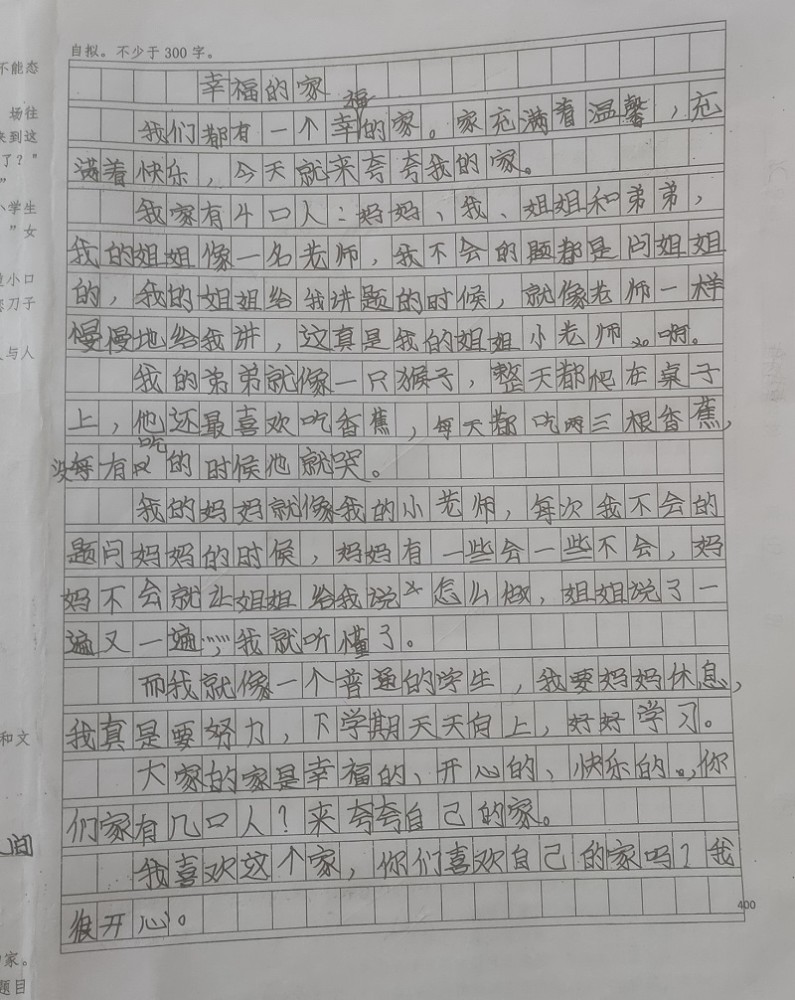 自拟。不少于 300 字。
不能态
场往
来到这
了？”
”
小学生
”女
小口
刀子
人与人
和文
间
家。
题目
幸福的家
我们都有一个幸福的家。家充满着温馨，充
满着快乐，今天就来夸夸我的家。
我家有4口人：妈妈、我、姐姐和弟弟，
我的姐姐像一名老师，我不会的题都是问姐姐
的，我的姐姐给我讲题的时候，就像老师一样
慢慢地给我讲，这真是我的姐姐小老师啊。
我的弟弟就像一只猴子，整天都爬在桌子
上，他还最喜欢吃香蕉，每天都吃两三根香蕉，
没有吃的时候他就哭。
我的妈妈就像我的小老师，每次我不会的
题问妈妈的时候，妈妈有一些会一些不会，妈
妈不会就让姐姐给我说怎么做，姐姐说了一
遍又一遍，我就听懂了。
而我就像一个普通的学生，我要妈妈休息，
我真是要努力，下学期天天向上，好好学习。
大家的家是幸福的、开心的、快乐的。，你
们家有几口人？来夸夸自己的家。
我喜欢这个家，你们喜欢自己的家吗？我
很开心。
400